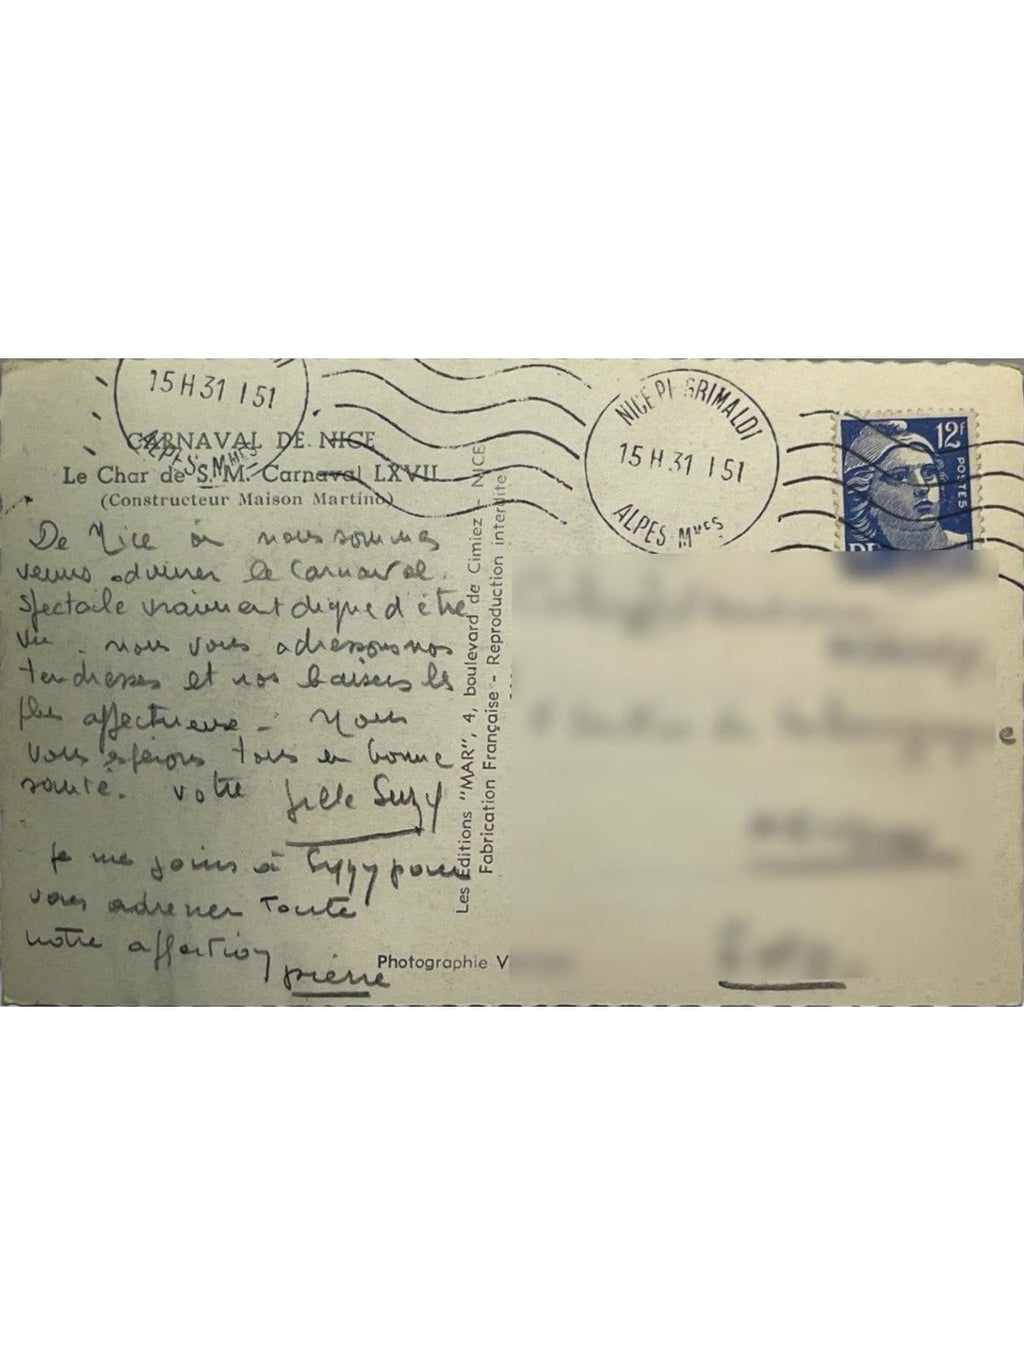 15 H 31 1 51
ALPES Mmes
CARNAVAL DE NICE
Le Char de S. M. Carnaval LXVII
(Constructeur Maison Martino)
De Nice où nous sommes
venus admirer le Carnaval.
Spectacle vraiment digne d'être
vu. nous vous adressons nos
tendresses et nos baisers les
plus affectueux - Nous
vous espérons tous en bonne
santé. votre fille Suzy
Je me joins à Suzy pour
vous adresser toute
notre affection
pierre
Les Editions "MAR", 4, boulevard de Cimiez - NICE
Fabrication Française - Reproduction interdite
Photographie V
NICE PL GRIMALDI
15 H 31 1 51
ALPES-Mmes
12F
POSTES